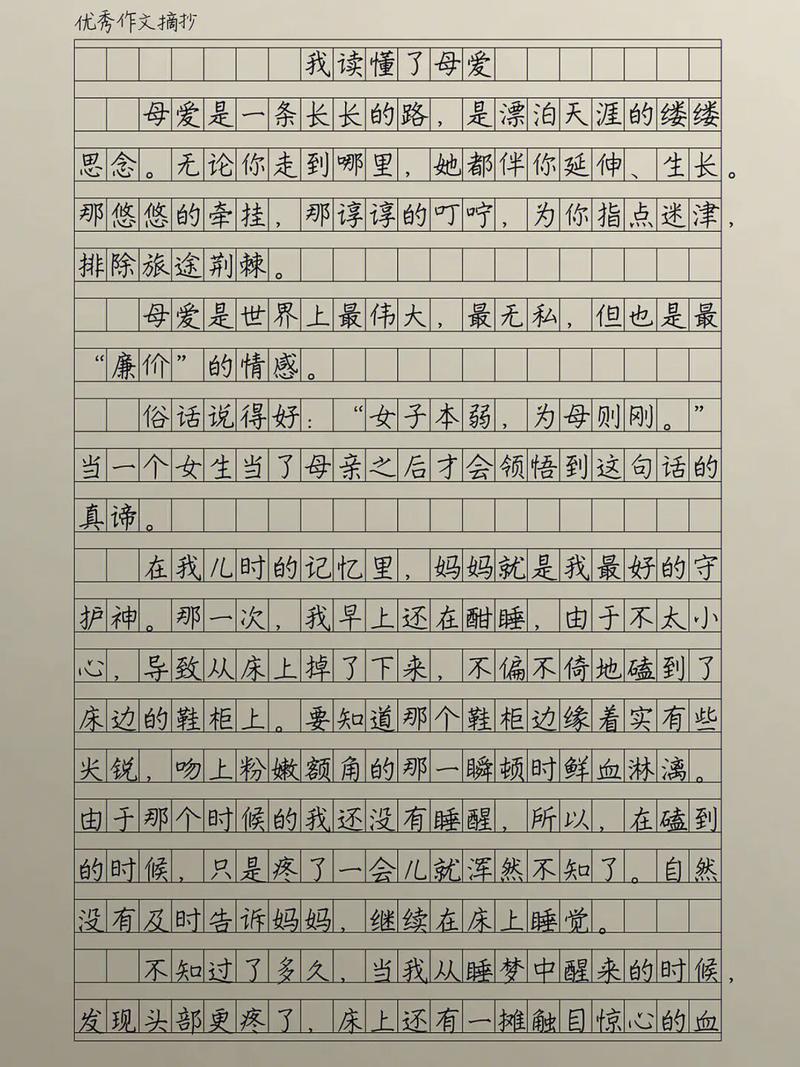 优秀作文摘抄
我读懂了母爱
母爱是一条长长的路，是漂泊天涯的缕缕
思念。无论你走到哪里，她都伴你延伸、生长。
那悠悠的牵挂，那谆谆的叮咛，为你指点迷津，
排除旅途荆棘。
母爱是世界上最伟大，最无私，但也是最
“廉价”的情感。
俗话说得好：“女子本弱，为母则刚。”
当一个女生当了母亲之后才会领悟到这句话的
真谛。
在我儿时的记忆里，妈妈就是我最好的守
护神。那一次，我早上还在酣睡，由于不太小
心，导致从床上掉了下来，不偏不倚地磕到了
床边的鞋柜上。要知道那个鞋柜边缘着实有些
尖锐，吻上粉嫩额角的那一瞬顿时鲜血淋漓。
由于那个时候的我还没有睡醒，所以，在磕到
的时候，只是疼了一会儿就浑然不知了。自然
没有及时告诉妈妈，继续在床上睡觉。
不知过了多久，当我从睡梦中醒来的时候，
发现头部更疼了，床上还有一摊触目惊心的血